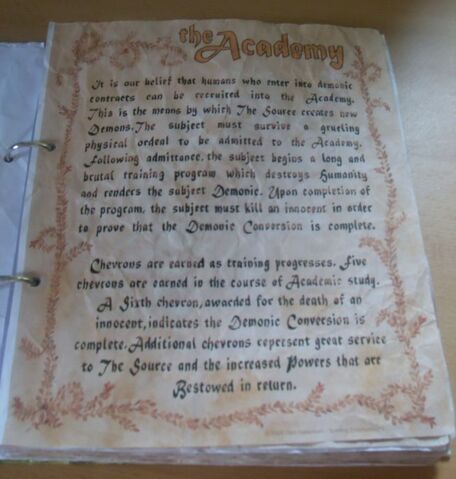 the Academy
It is our belief that humans who enter into demonic
contracts can be recruited into the Academy.
This is the means by which The Source creates new
Demons.The subject must survive a grueling
physical ordeal to be admitted to the Academy.
Following admittance, the subject begins a long and
brutal training program which destroys Humanity
and renders the subject Demonic. Upon completion of
the program, the subject must kill an innocent in order
to prove that the Demonic Conversion is complete.
Chevrons are earned as training progresses. Five
chevrons are earned in the course of Academic study.
A Sixth chevron,awarded for the death of an
innocent,indicates the Demonic Conversion is
complete.Additional chevrons represent great service
to The Source and the increased Powers that are
Bestowed in return.